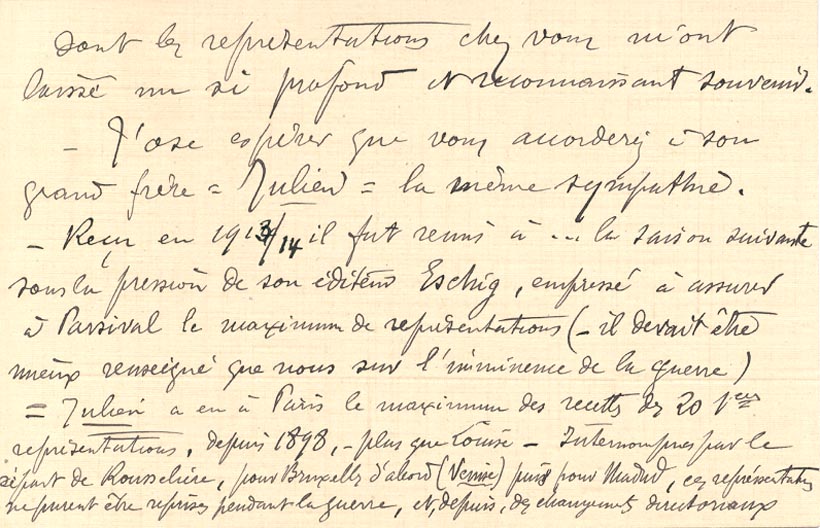 dont les représentations chez vous m'ont
laissé un si profond et reconnaissant souvenir.
– J'ose espérer que vous accorderez à son
grand frère = Julien = la même sympathie.
– Reçu en 1913/14 il fut remis à ... la saison suivante
sous la pression de son éditeur Eschig, empressé à assurer
à Parsival le maximum de représentations (– il devait être
mieux renseigné que nous sur l'imminence de la guerre)
= Julien a eu à Paris le maximum des recettes des 20 1ères
représentations, depuis 1898, – plus que Louise – Interrompues par le
départ de Rousselière, pour Bruxelles d'abord (Venise) puis pour Madrid, ces représentations
ne purent être reprises pendant la guerre, et, depuis, des changements directoriaux